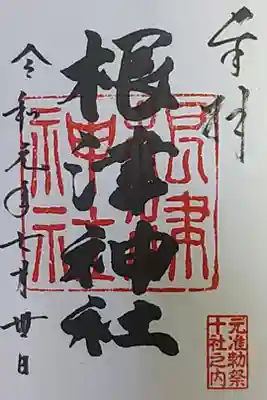 奉拝
根津神社
根津神社
令和元年七月卅日
元准勅祭
十社之内